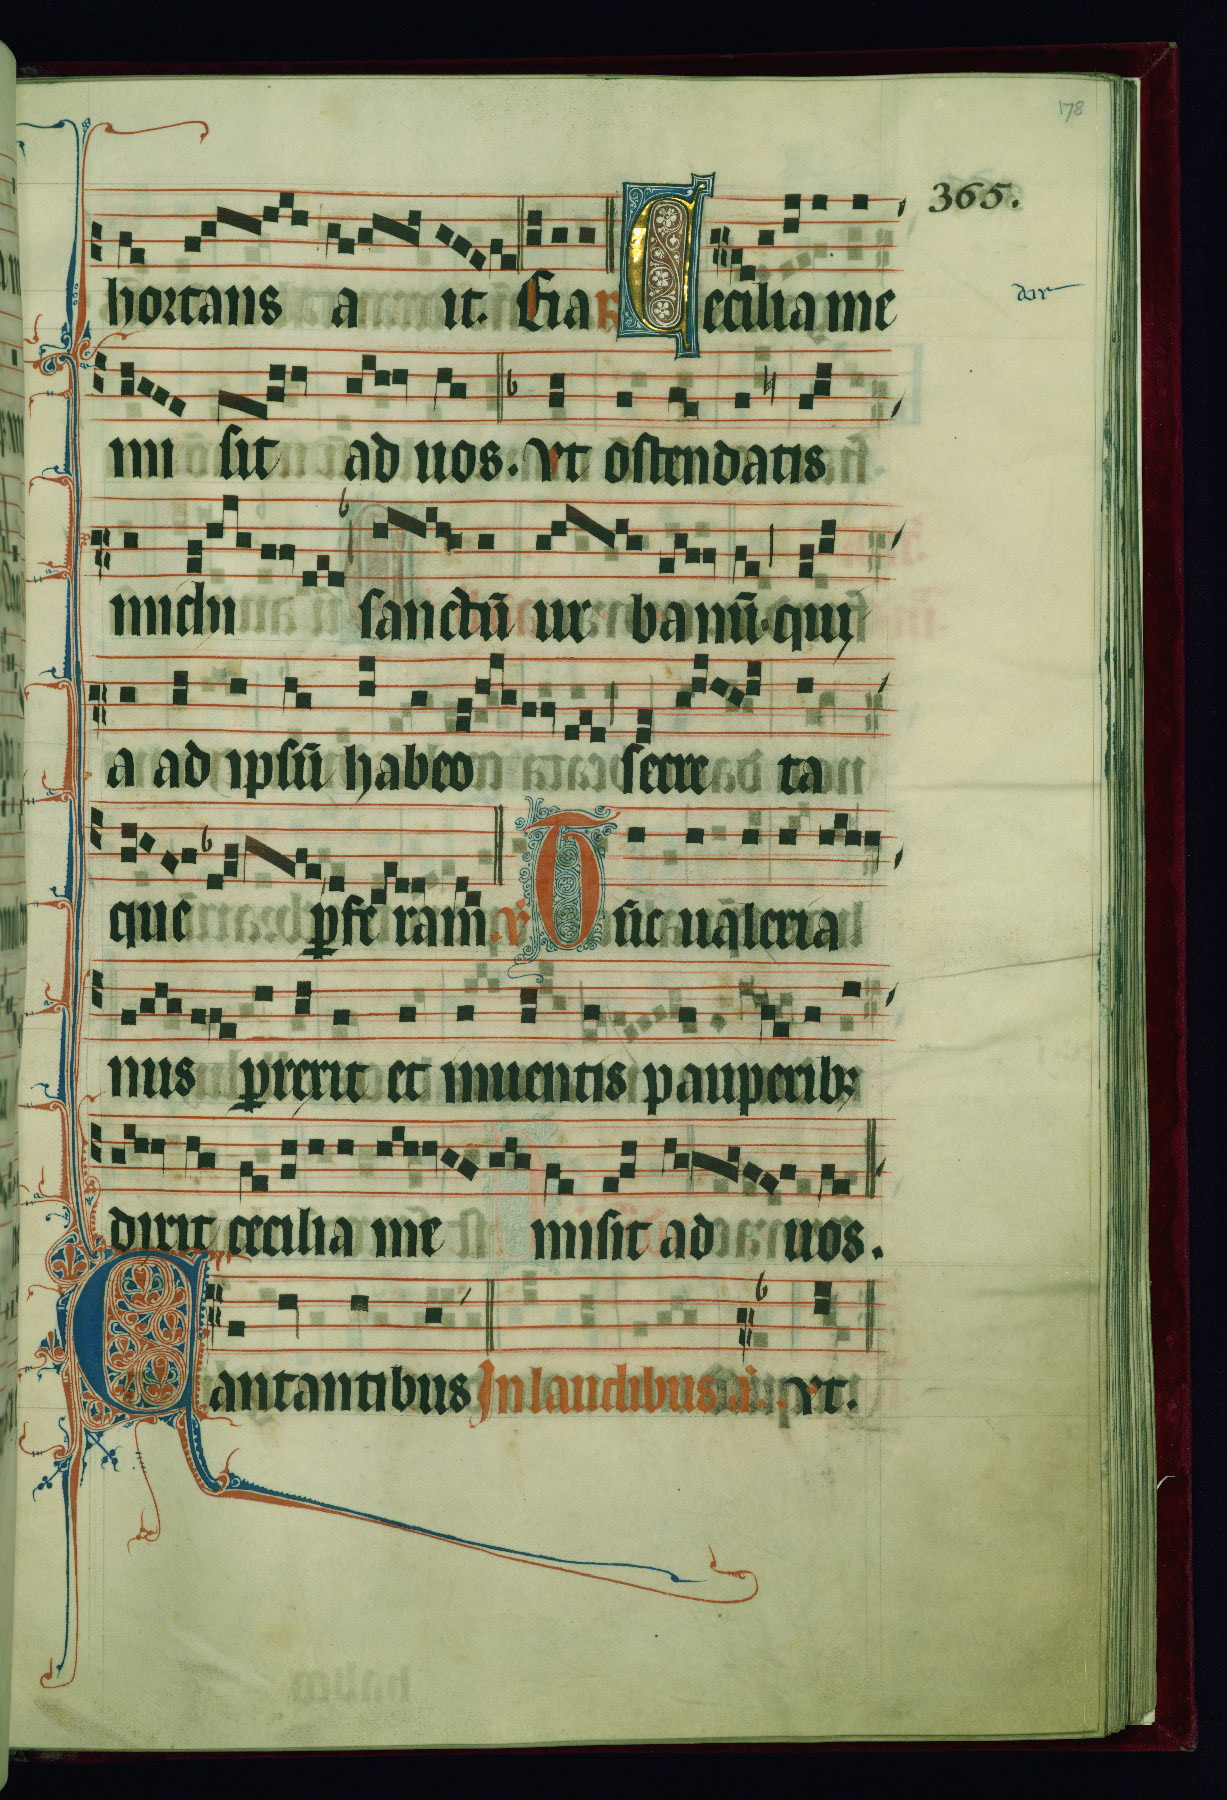 178
365.
hortans a it. Eia R Cecilia me
mi sit ad uos. Vt ostendatis
michi sanctū ur banū. qui
a ad ipsū habeo secre ta
que ꝑfe ram ℣ Tūc ualeria
nus ꝑrexit et inuentis pauperibꝫ
dixit cecilia me misit ad uos.
Cantantibus In laudibus añ. Vt.